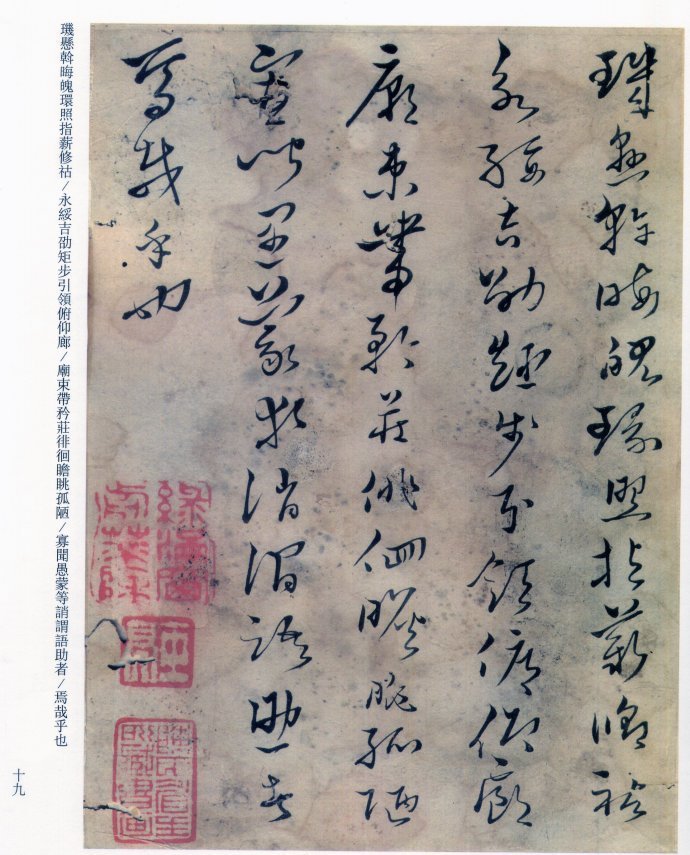 璣懸斡晦魄環照指薪修祜
永綏吉劭矩步引領俯仰廊
廟束帶矜莊徘徊瞻眺孤陋
寡聞愚蒙等誚謂語助者
焉哉乎也
璣懸斡晦魄環照指薪修祜/永綏吉劭矩步引領俯仰廊/廟束帶矜莊徘徊瞻眺孤陋/寡聞愚蒙等誚謂語助者/焉哉乎也
十九